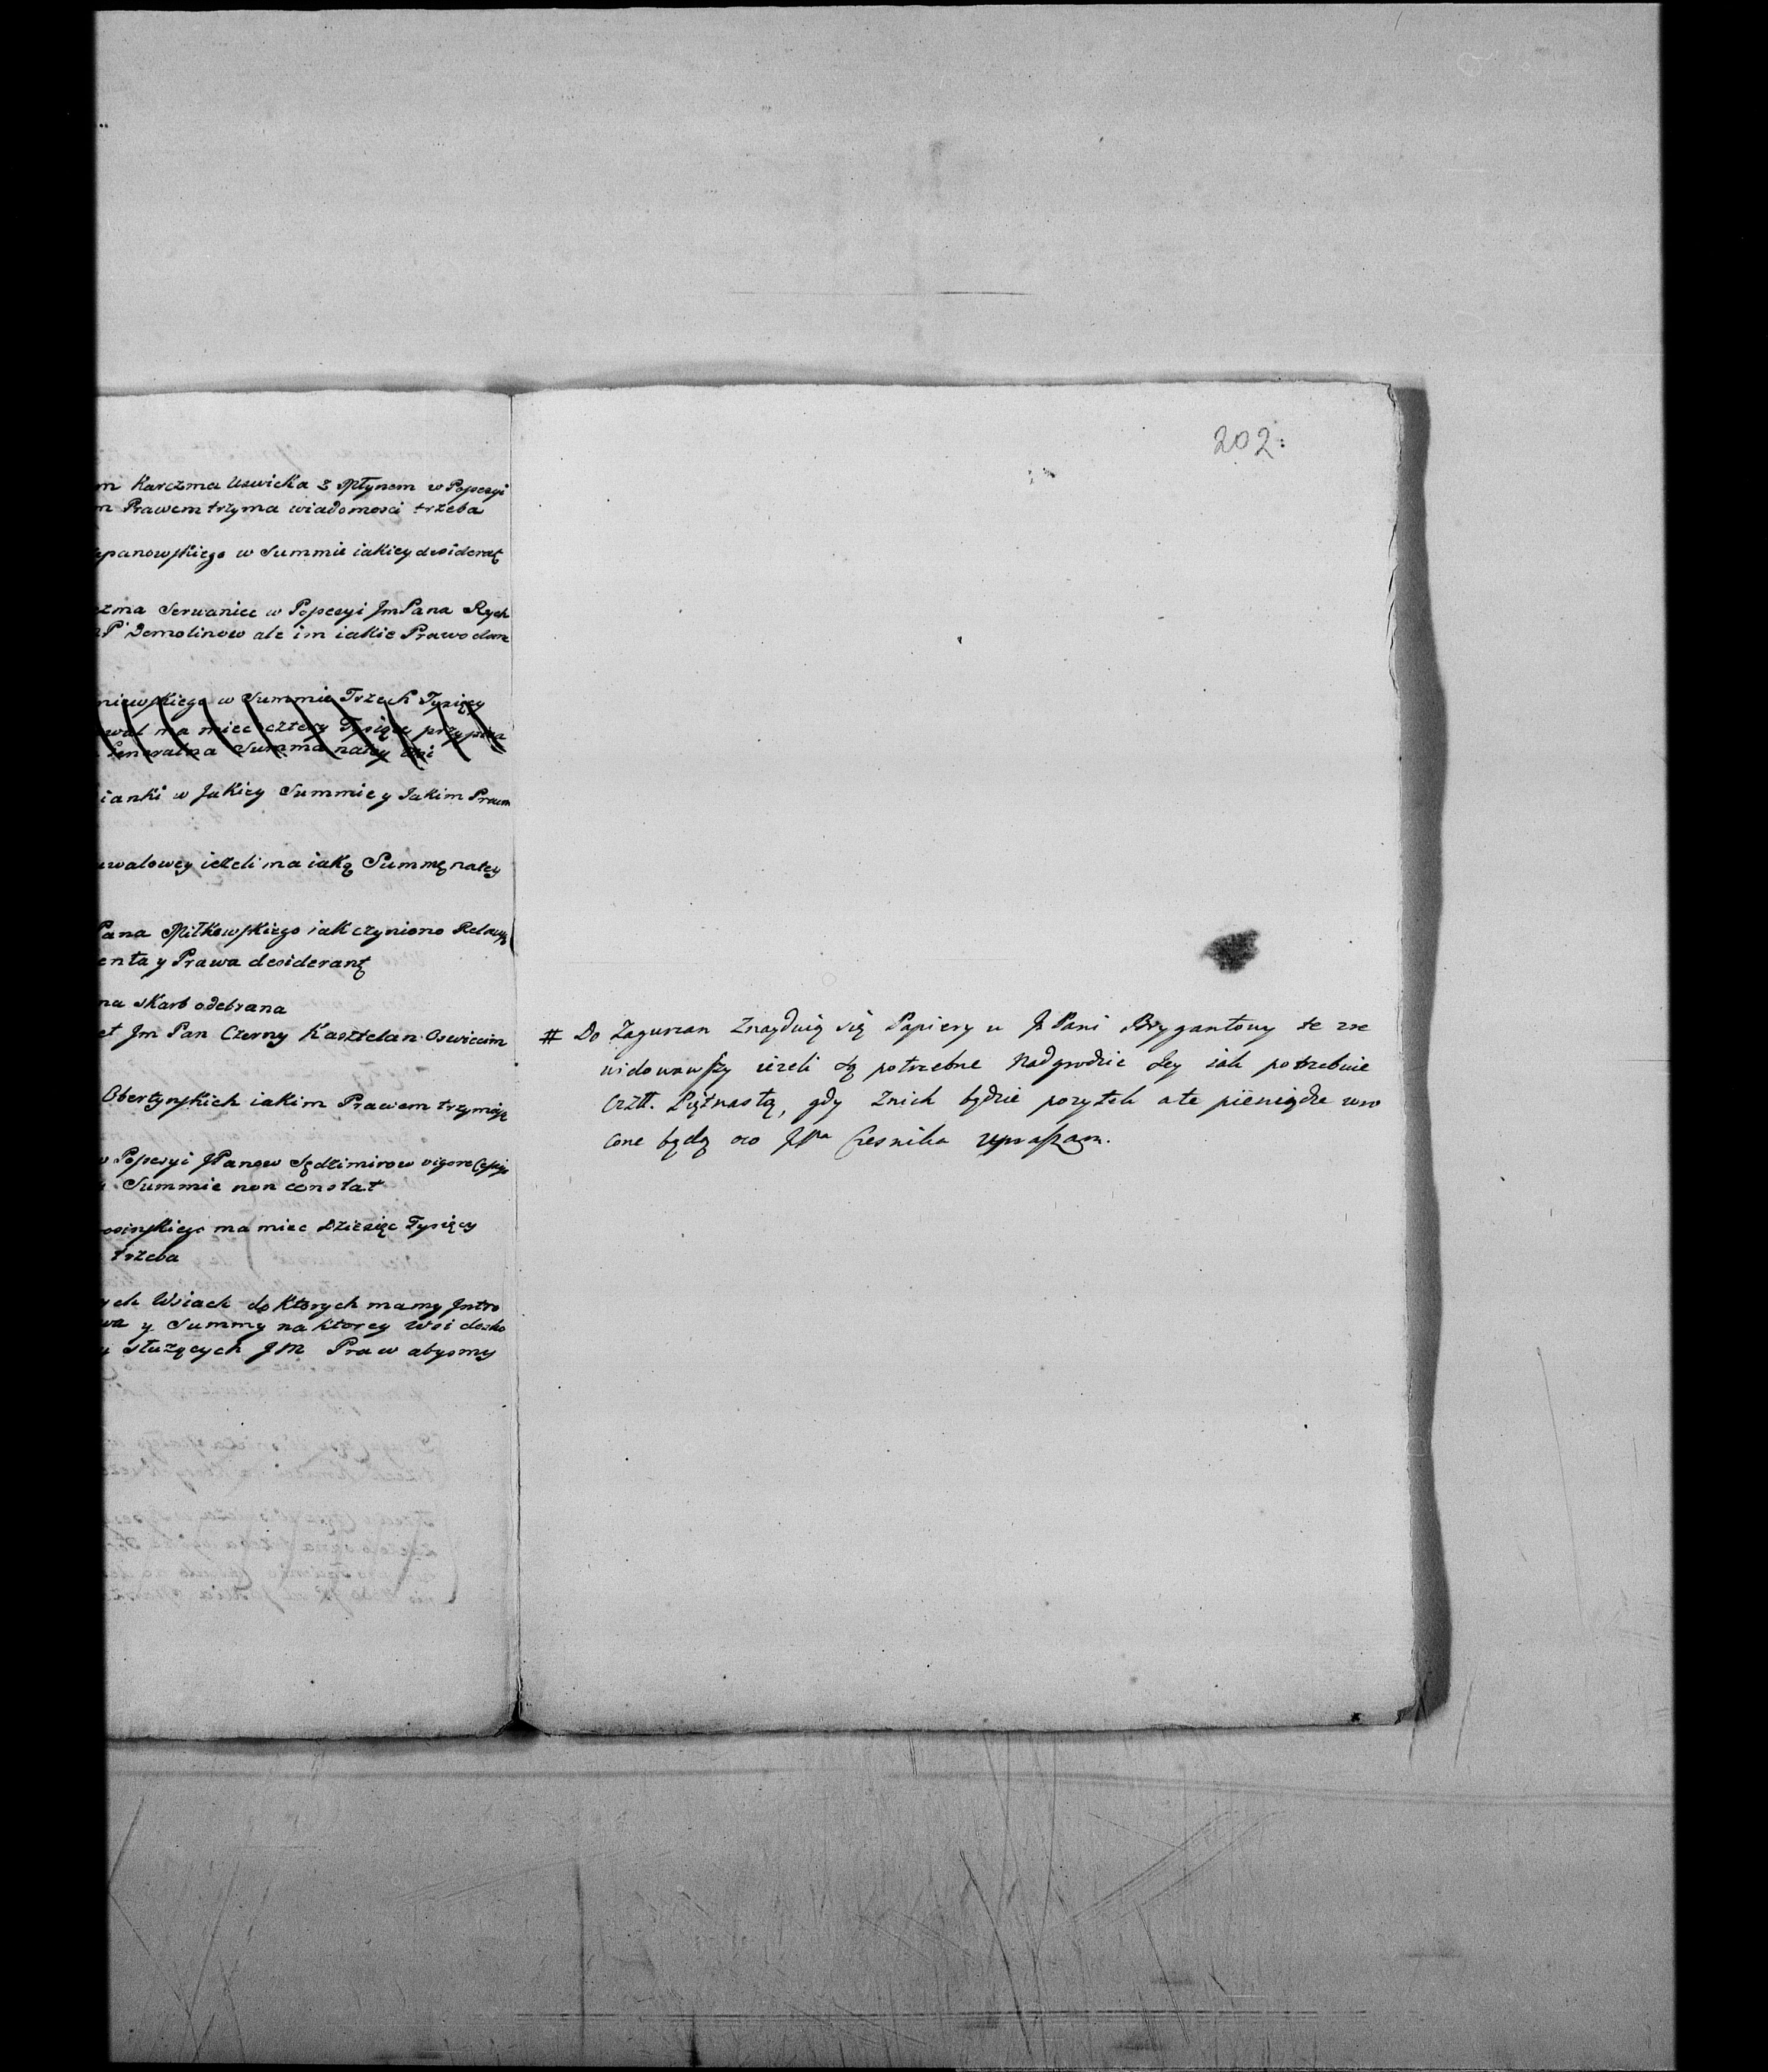 m Karczma Uswicka z Młynem w Popesyi
m Prawem trzyma wiadomosci trzeba
epanowskiego w Summie iakiey desideratę
zma Serwanice w Popesyi Jm Pana Rych
P Demolinow ale im iakie Prawo dane
niewskiego w Summie Trzech Tysięcy
wal ma miec cztery Tysięcy przypisa
Generalna Summa natey wsi
ianki w Jakiey Summie y Jakim Prawem
walowey ieżeli ma iaką Summę natey
Pana Miłkowskiego iak czyniono Relacyą
enta y Prawa desiderantę
na skarb odebrana
et Jm Pan Czerny Kasztelan Oswiecim
Obertynskich iakim Prawem trzymaią
w Popesyi JPanow Sędzimirow vigore Cessyi
Summie non constat
osinskiego ma miec Dziesięc Tysięcy
trzeba
ych Wsiach do Ktorych mamy Intro
wa y Summy na Ktorey Wsi dosko
y słuzących JM Praw abysmy
202:
# Do Zagurzan Znayduią się Papiery u JPani Brygantowy te zre
widowawszy ieżeli są potrzebne Nadgrodzic Jey iak potrzebuie
Czzłł. Piętnastą, gdy Znich będzie pozytek a te pieniądze wro
cone będą oco JPna Czesnika upraszam.